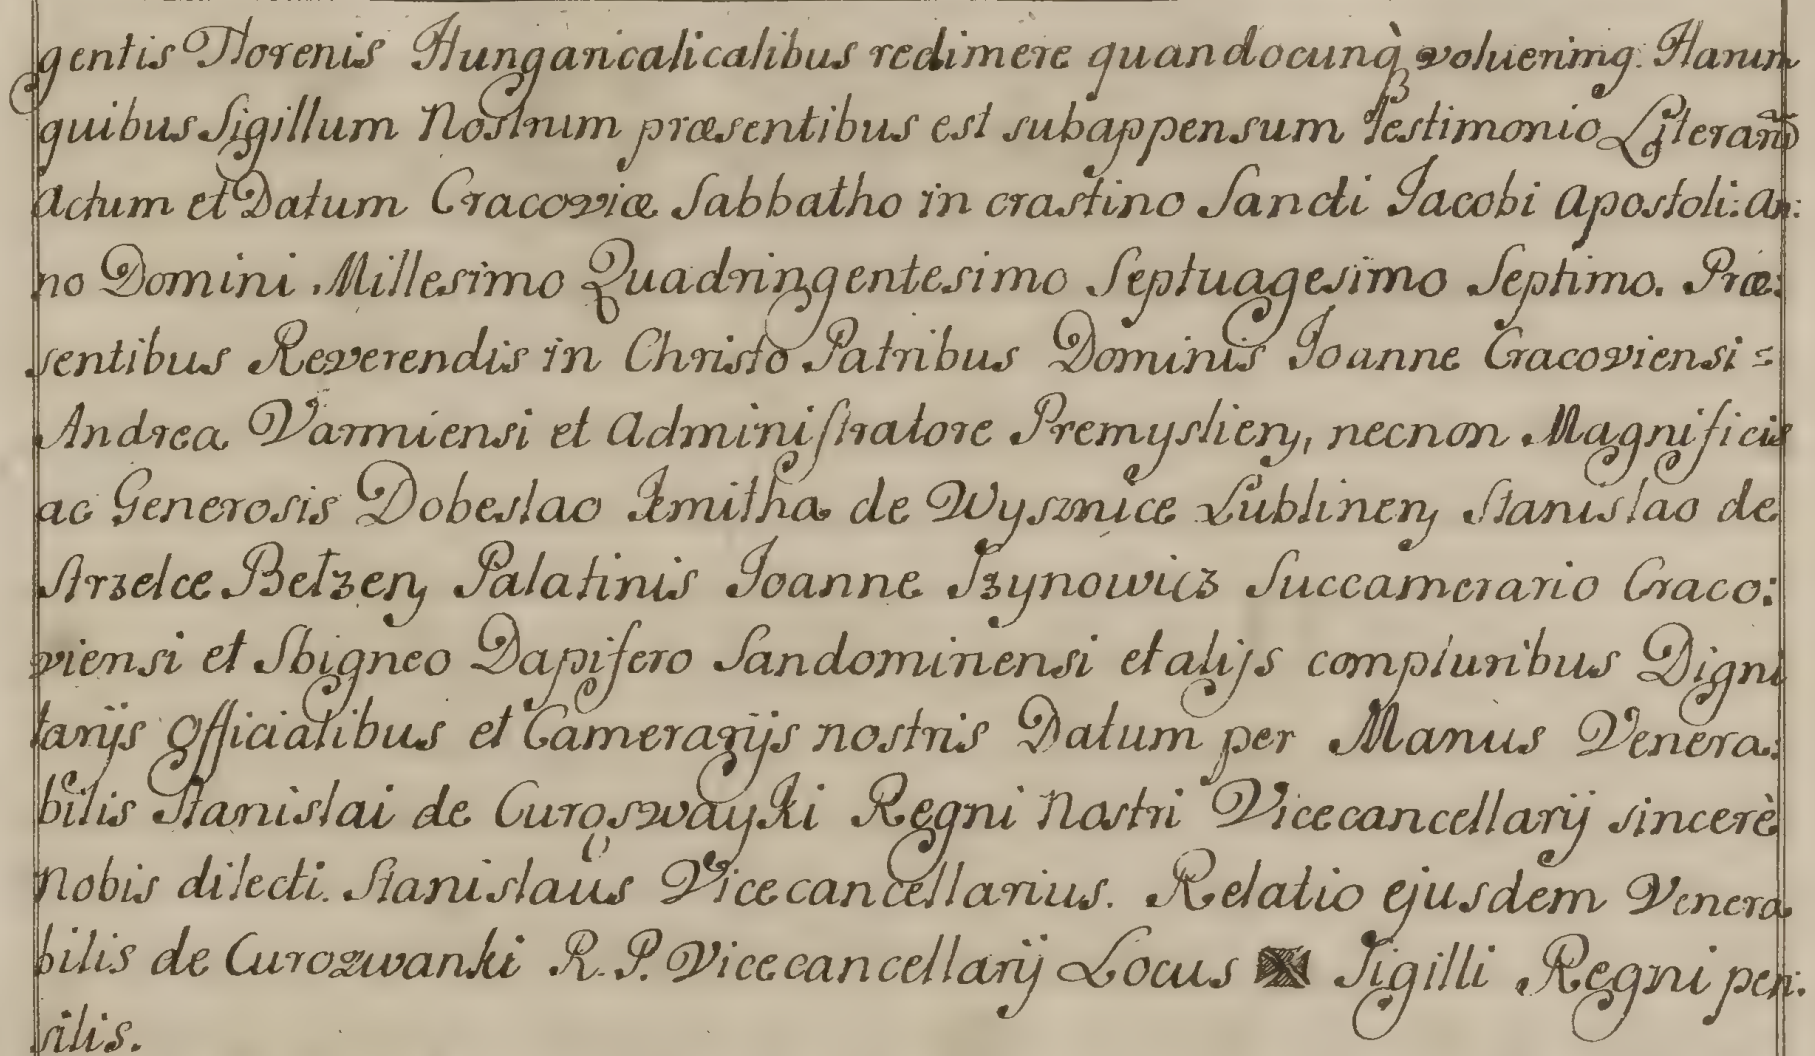 gentis Florenis Hungaricalicalibus redimere quandocunq̀ voluerimg. Harum
quibus Sigillum Nostrum præsentibus est subappensum testimonio Literarũ
Actum et Datum Cracoviæ Sabbatho in crastino Sancti Jacobi Apostoli: An:
no Domini Millesimo Quadringentesimo Septuagesimo Septimo. Præ:
sentibus Reverendis in Christo Patribus Dominis Joanne Cracoviensi =
Andrea Varmiensi et Administratore Premyslien, necnon Magnificis
ac Generosis Dobeslao Kmitha de Wysznice Lublinen Stanislao de
Strzelce Betzen Palatinis Joanne Szynowicz Succamerario Craco:
viensi et Sbigneo Dapifero Sandominensi et alijs compluribus Digni
tarijs Officialibus et Camerarijs nostris Datum per Manus Venera:
bilis Stanislai de Curoswayki Regni Nostri Vicecancellarij sincerè
Nobis dilecti. Stanislaus Vicecancellarius. Relatio ejusdem Venera
bilis de Curozwanki R. P. Vicecancellarij Locus Sigilli Regni pen:
silis.